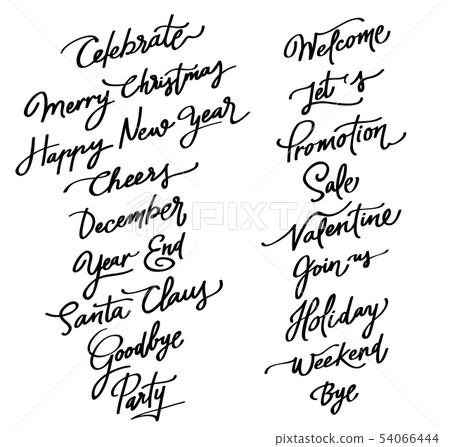 Celebrate
Merry Christmas
Happy New Year
Cheers
December
Year End
Santa Claus
Goodbye
Party
Welcome
Let's
Promotion
Sale
Valentine
Join us
Holiday
Weekend
Bye
PIXTA
54066444